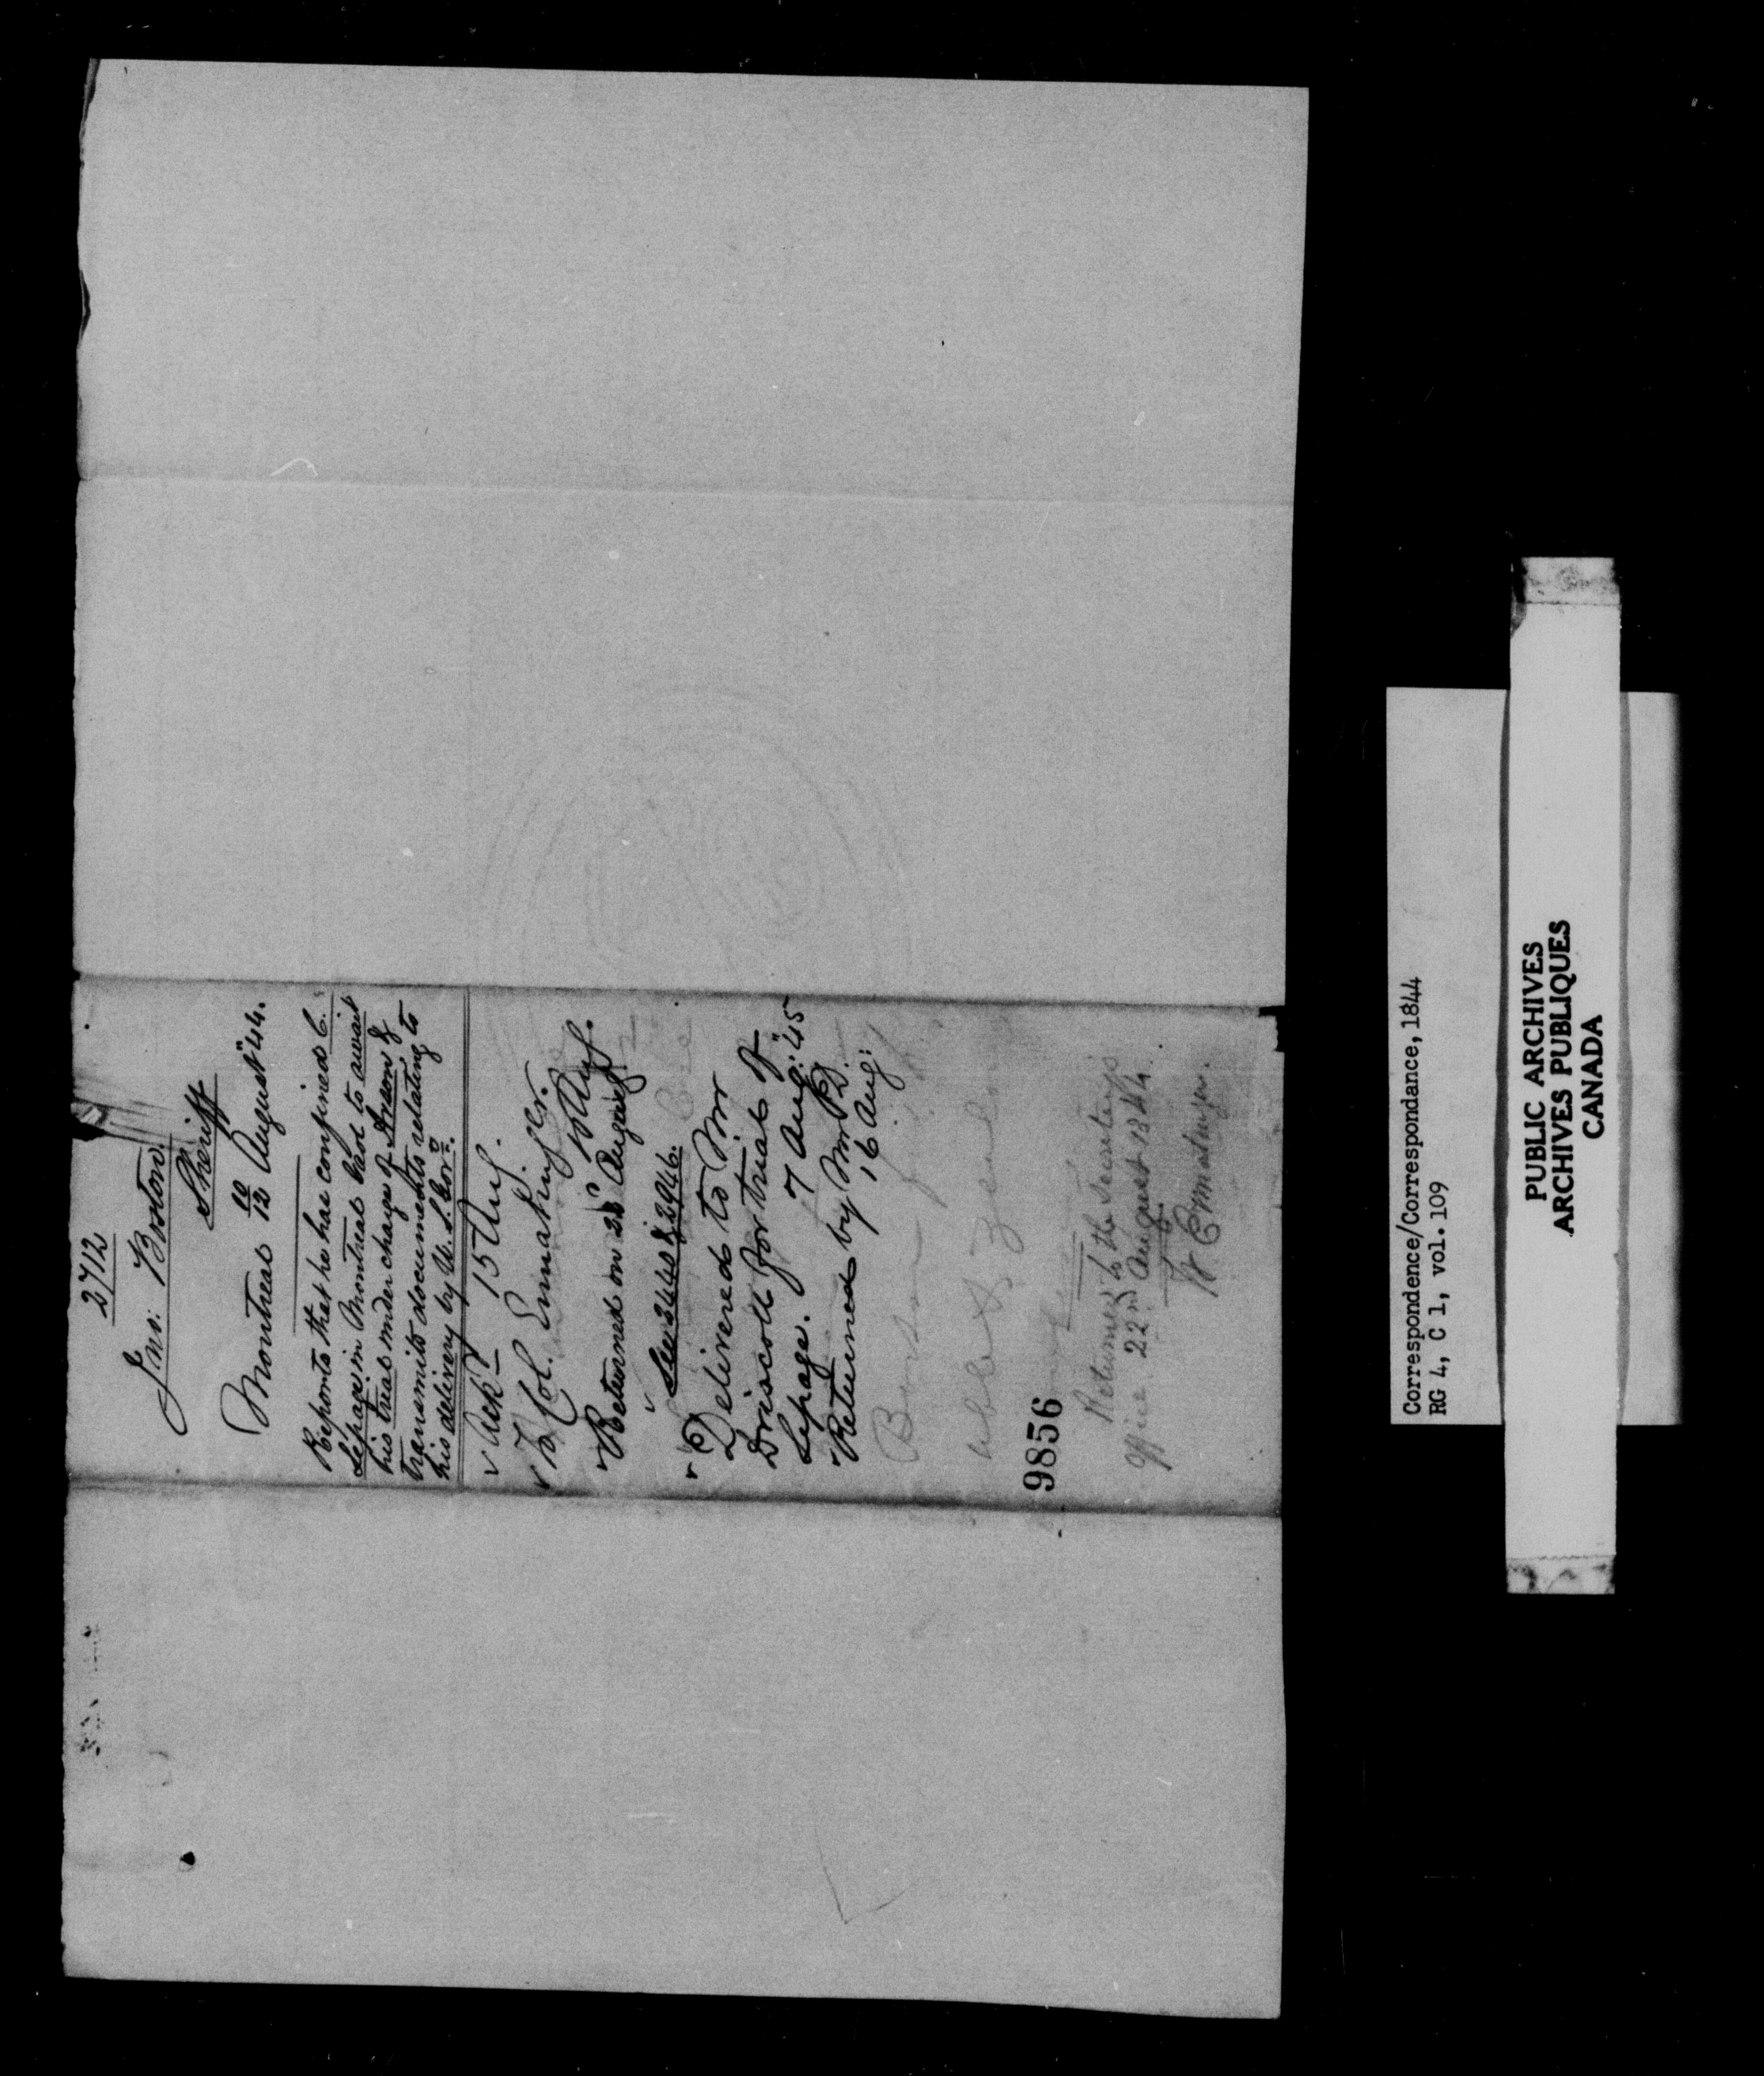 2712
Jno: Boston.
Sheriff
Montreal 10/12 August "44.
Reports that he has confined C.
Lepage in Montreal Gaol to await
his trial under charge of Arson &
transmits documents relating to
his delivery by U. S. Gov.
✓ Ack. 15 Aug.
✓ To Col. Ermatinger.
Returned on 22 August
✓ See 3440 & 2946.
✓ Delivered to Mr
Driscoll for trial of
Lepage. 7 Aug: "45
✓ Returned by Mr D.
16 Aug:
Boston
9856
Returned to the Secretarys
Office. 22nd August 1844.
W Ermatinger.
Correspondence/Correspondance, 1844
RG 4, C 1, vol. 109
PUBLIC ARCHIVES
ARCHIVES PUBLIQUES
CANADA